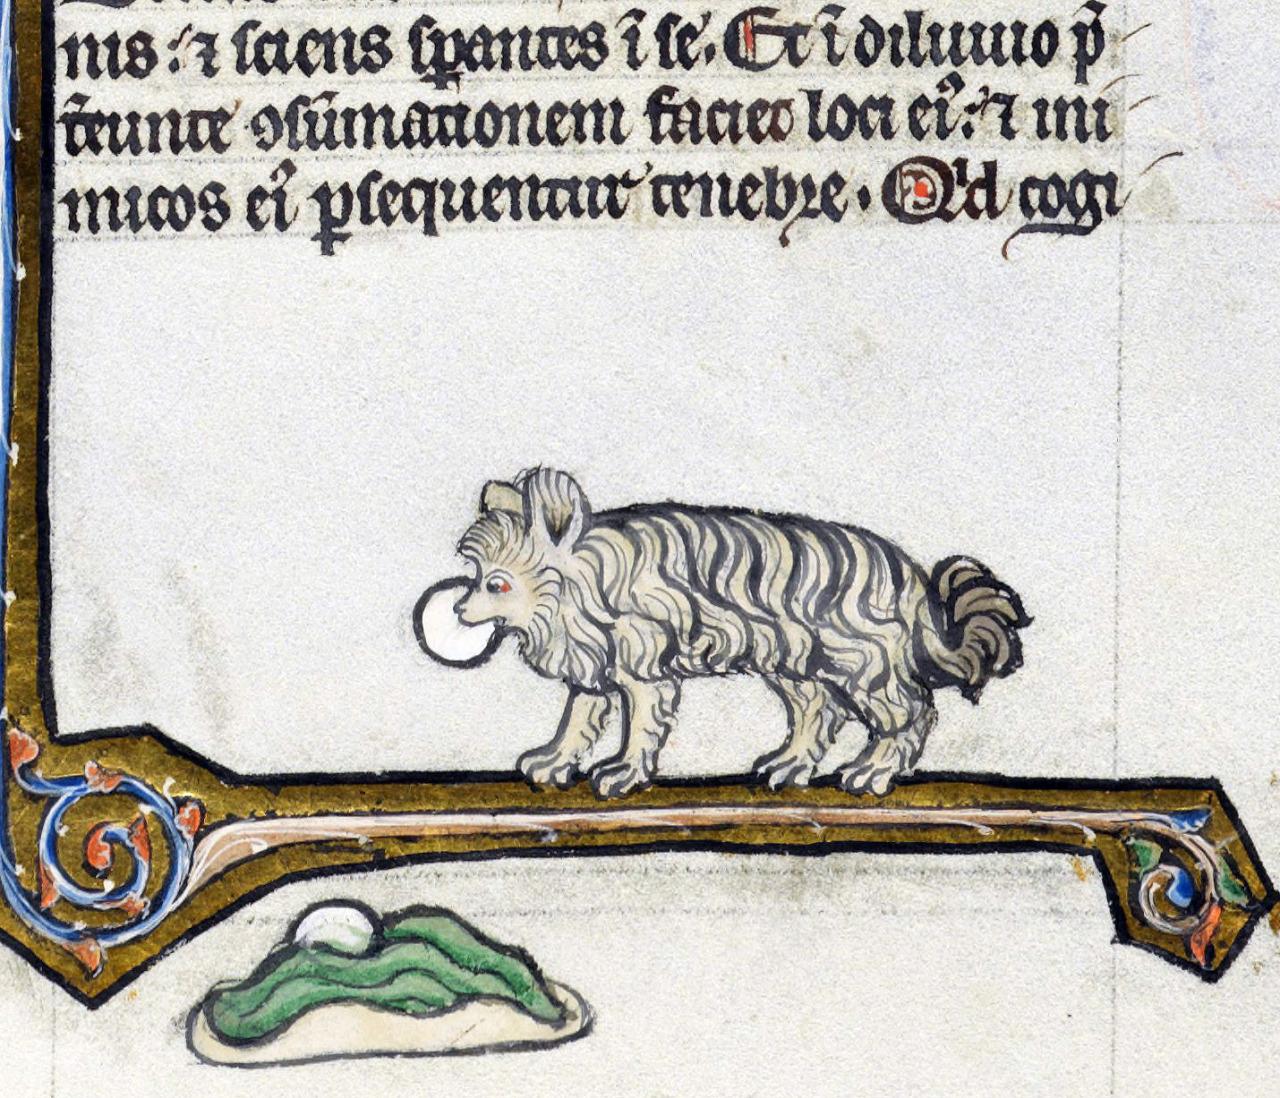 nis: ⁊ sciens sꝑantes ĩ se. Et ĩ diluuio p̃
t̃eunte ꝯsũmationem faciet loci eiꝰ: ⁊ ini
micos eiꝰ ꝑsequentur tenebre. Qⁱd cogi